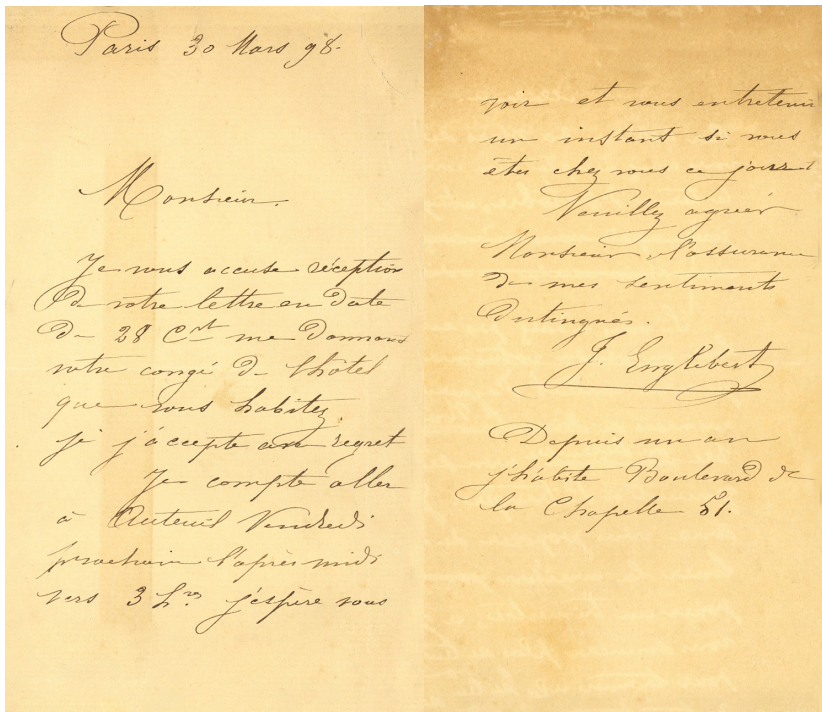 Paris 30 Mars 98.
Monsieur.
Je vous accuse réception
de votre lettre en date
du 28 Ct me donnant
votre congé de l'hôtel
que vous habitez.
je j'accepte avec regret
Je compte aller
à Auteuil Vendredi
prochain l'après midi
vers 3 hres j'espère vous
voir et vous entretenir
un instant si vous
êtes chez vous ce jour
Veuillez agréer
Monsieur l'assurance
de mes sentiments
distingués.
J. Englebert
Depuis un an
j'habite Boulevard de
la Chapelle 51.